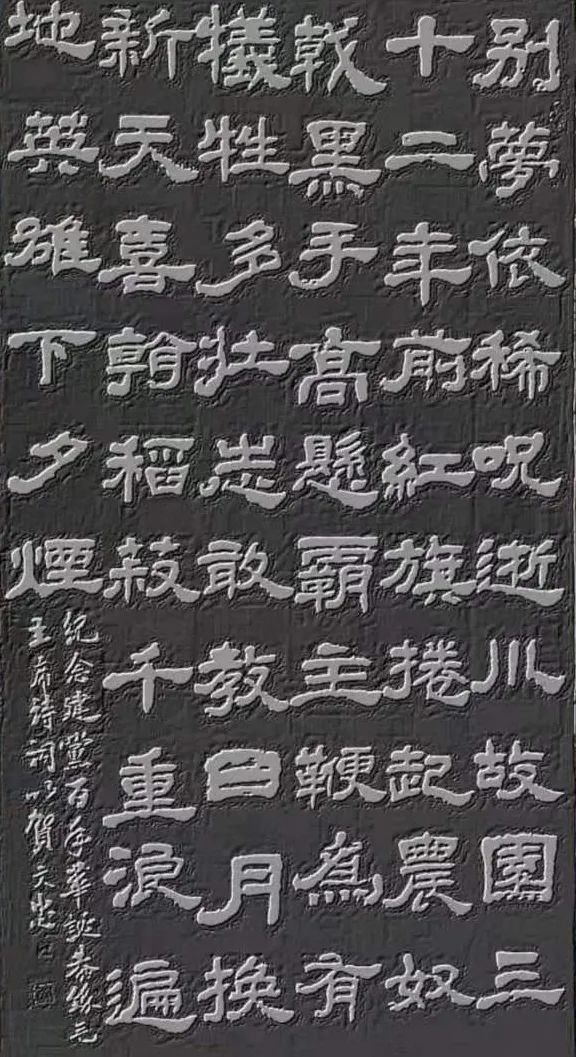 别夢依稀呪逝川故園三
十二年前紅旗捲起農奴
戟黑手高懸霸主鞭為有
犧牲多壮志敢教日月换
新天喜看稻菽千重浪遍
地英雄下夕煙
纪念建黨百年華誕恭錄毛
主席詩詞以賀文忠